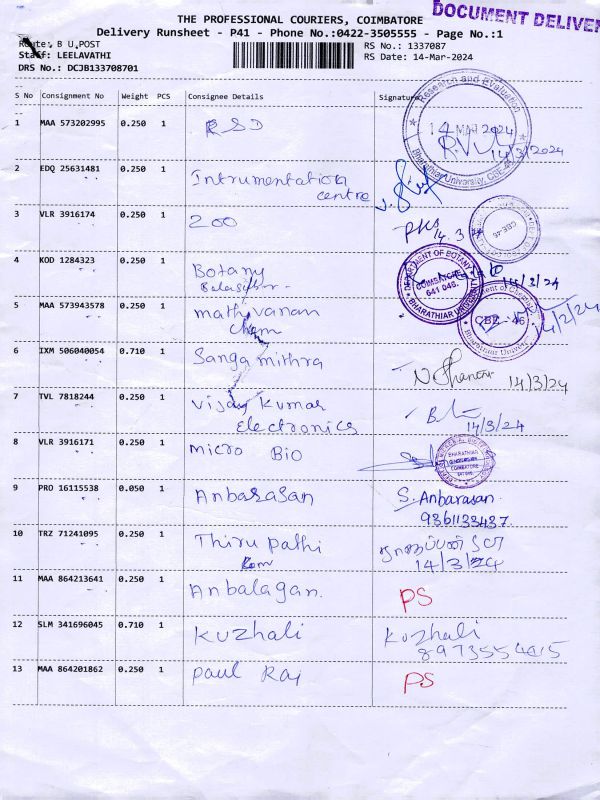 DOCUMENT DELIVER
THE PROFESSIONAL COURIERS, COIMBATORE
Delivery Runsheet - P41 - Phone No.:0422-3505555 - Page No.:1
Route: B U.POST
Staff: LEELAVATHI
DRS No.: DCJB133708701
RS No.: 1337087
RS Date: 14-Mar-2024
S No Consignment No Weight PCS Consignee Details Signature
1 MAA 573202995 0.250 1 RSD
Research and Evaluation
14 MAR 2024
14/3/2024
Bharathiar University, CBE-46
2 EDQ 25631481 0.250 1 Intrumentation
centre
3 VLR 3916174 0.250 1 200
14.3
CBE-46
4 KOD 1284323 0.250 1 Botany
DEPARTMENT OF BOTANY
COIMBATORE
641 046.
BHARATHIAR UNIVERSITY
14/3/24
5 MAA 573943578 0.250 1 mathivanam
chem
CBE - 46
Bharathiar University
6 IXM 506040054 0.710 1 Sanga mithra
14/3/24
7 TVL 7818244 0.250 1 Vijay Kumar
Electronics
14/3/24
8 VLR 3916171 0.250 1 micro Bio
BHARATHIAR
COIMBATORE
9 PRO 16115538 0.050 1 Anbarasan S. Anbarasan
9361133437
10 TRZ 71241095 0.250 1 Thiru pathi
14/3/24
11 MAA 864213641 0.250 1 Anbalagan. PS
12 SLM 341696045 0.710 1 Kuzhali Kuzhali
8973554015
13 MAA 864201862 0.250 1 paul Raj PS